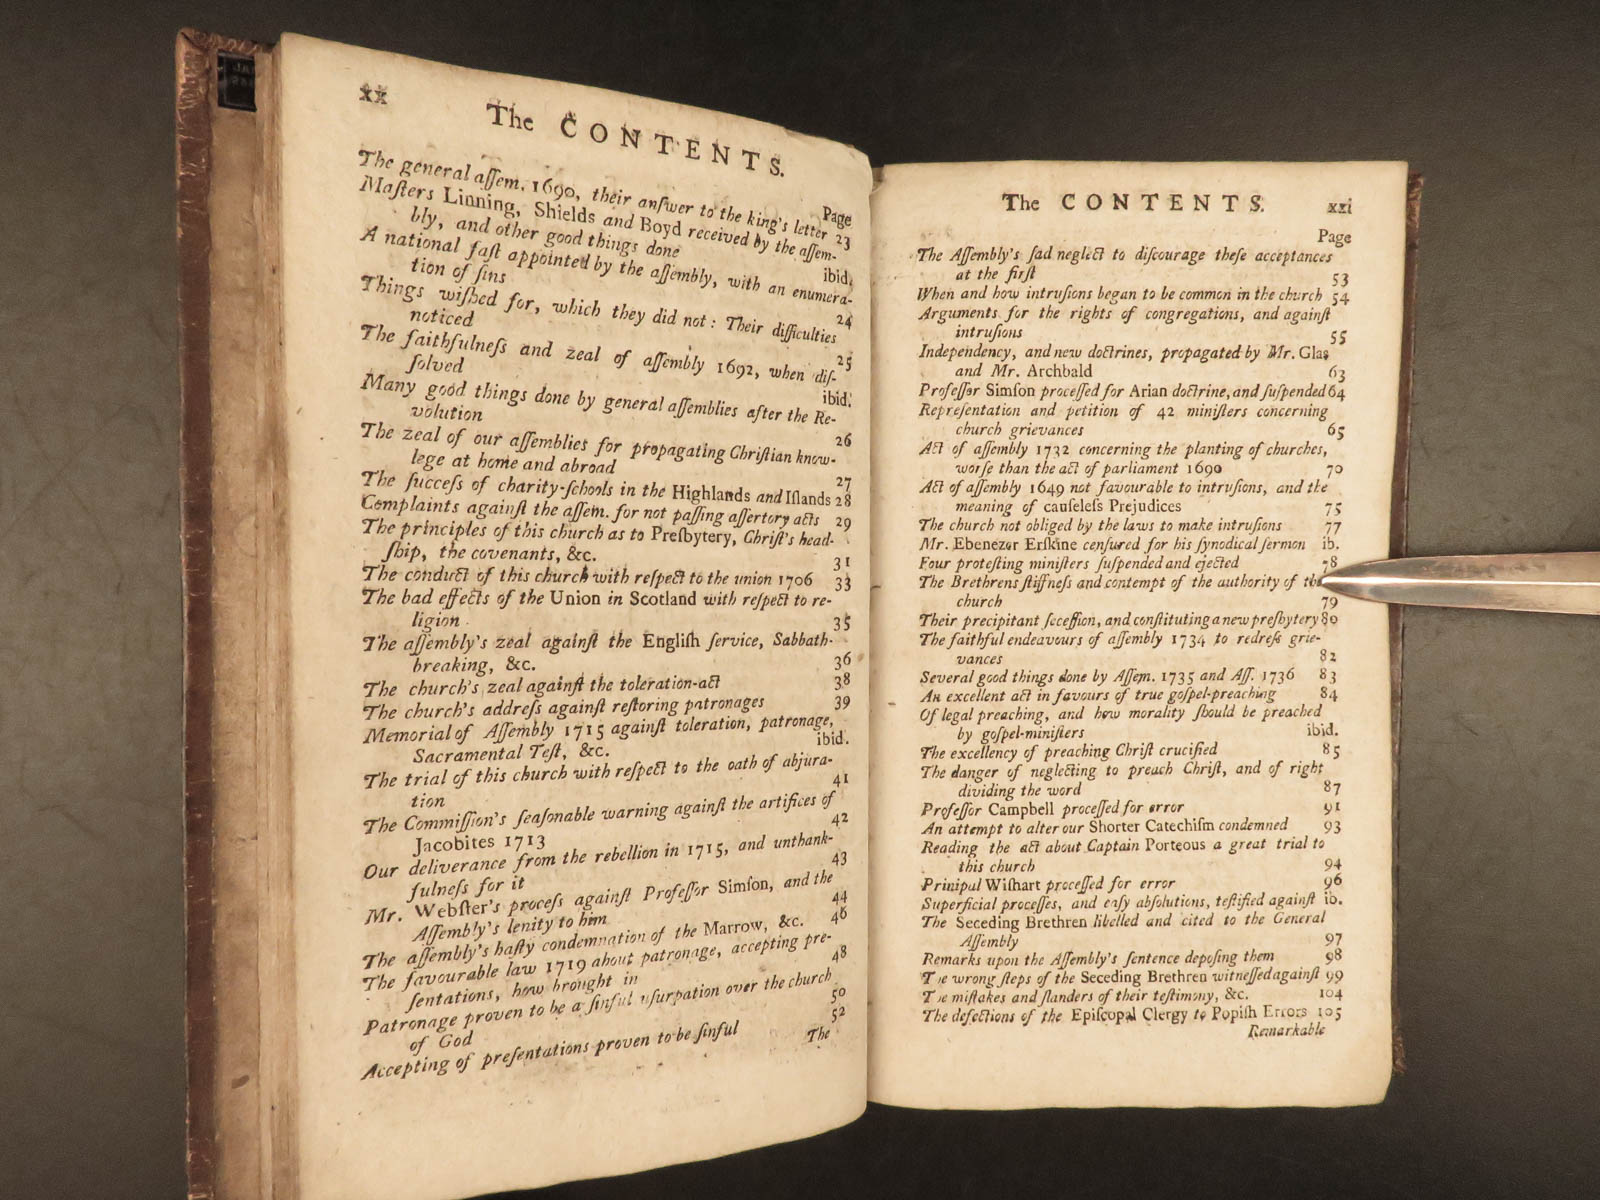 xx
The CONTENTS.
Page
The general aſſem. 1690, their anſwer to the king's letter 23
Maſters Linning, Shields and Boyd received by the aſſem-
bly, and other good things done ibid.
A national faſt appointed by the aſſembly, with an enumera-
tion of ſins 24
Things wiſhed for, which they did not: Their difficulties
noticed 25
The faithfulneſs and zeal of aſſembly 1692, when diſ-
ſolved ibid.
Many good things done by general aſſemblies after the Re-
volution 26
The zeal of our aſſemblies for propagating Chriſtian know-
lege at home and abroad 27
The ſucceſs of charity-ſchools in the Highlands and Iſlands 28
Complaints againſt the aſſem. for not paſſing aſſertory acts 29
The principles of this church as to Preſbytery, Chriſt's head-
ſhip, the covenants, &c. 31
The conduct of this church with reſpect to the union 1706 33
The bad effects of the Union in Scotland with reſpect to re-
ligion 35
The aſſembly's zeal againſt the Engliſh ſervice, Sabbath-
breaking, &c. 36
The church's zeal againſt the toleration-act 38
The church's addreſs againſt reſtoring patronages 39
Memorial of Aſſembly 1715 againſt toleration, patronage,
Sacramental Teſt, &c. ibid.
The trial of this church with reſpect to the oath of abjura-
tion 41
The Commiſſion's ſeaſonable warning againſt the artifices of
Jacobites 1713 42
Our deliverance from the rebellion in 1715, and unthank-
fulneſs for it 43
Mr. Webſter's proceſs againſt Profeſſor Simſon, and the
Aſſembly's lenity to him 44
The aſſembly's haſty condemnation of the Marrow, &c. 46
The favourable law 1719 about patronage, accepting pre-
ſentations, how brought in 48
Patronage proven to be a ſinful uſurpation over the church
of God 50
Accepting of preſentations proven to be ſinful 52
The
The CONTENTS. xxi
Page
The Aſſembly's ſad neglect to diſcourage theſe acceptances
at the firſt 53
When and how intruſions began to be common in the church 54
Arguments for the rights of congregations, and againſt
intruſions 55
Independency, and new doctrines, propagated by Mr. Glas
and Mr. Archbald 63
Profeſſor Simſon proceſſed for Arian doctrine, and ſuſpended 64
Repreſentation and petition of 42 miniſters concerning
church grievances 65
Act of aſſembly 1732 concerning the planting of churches,
worſe than the act of parliament 1690 70
Act of aſſembly 1649 not favourable to intruſions, and the
meaning of cauſeleſs Prejudices 75
The church not obliged by the laws to make intruſions 77
Mr. Ebenezer Erſkine cenſured for his ſynodical ſermon ib.
Four proteſting miniſters ſuſpended and ejected 78
The Brethrens ſtiffneſs and contempt of the authority of the
church 79
Their precipitant ſeceſſion, and conſtituting a new preſbytery 80
The faithful endeavours of aſſembly 1734 to redreſs grie-
vances 82
Several good things done by Aſſem. 1735 and Aſſ. 1736 83
An excellent act in favours of true goſpel-preaching 84
Of legal preaching, and how morality ſhould be preached
by goſpel-miniſters ibid.
The excellency of preaching Chriſt crucified 85
The danger of neglecting to preach Chriſt, and of right
dividing the word 87
Profeſſor Campbell proceſſed for error 91
An attempt to alter our Shorter Catechiſm condemned 93
Reading the act about Captain Porteous a great trial to
this church 94
Prinipal Wiſhart proceſſed for error 96
Superficial proceſſes, and eaſy abſolutions, teſtified againſt ib.
The Seceding Brethren libelled and cited to the General
Aſſembly 97
Remarks upon the Aſſembly's ſentence depoſing them 98
T e wrong ſteps of the Seceding Brethren witneſſed againſt 99
T e miſtakes and ſlanders of their teſtimony, &c. 104
The defections of the Epiſcopal Clergy to Popiſh Errors 105
Remarkable